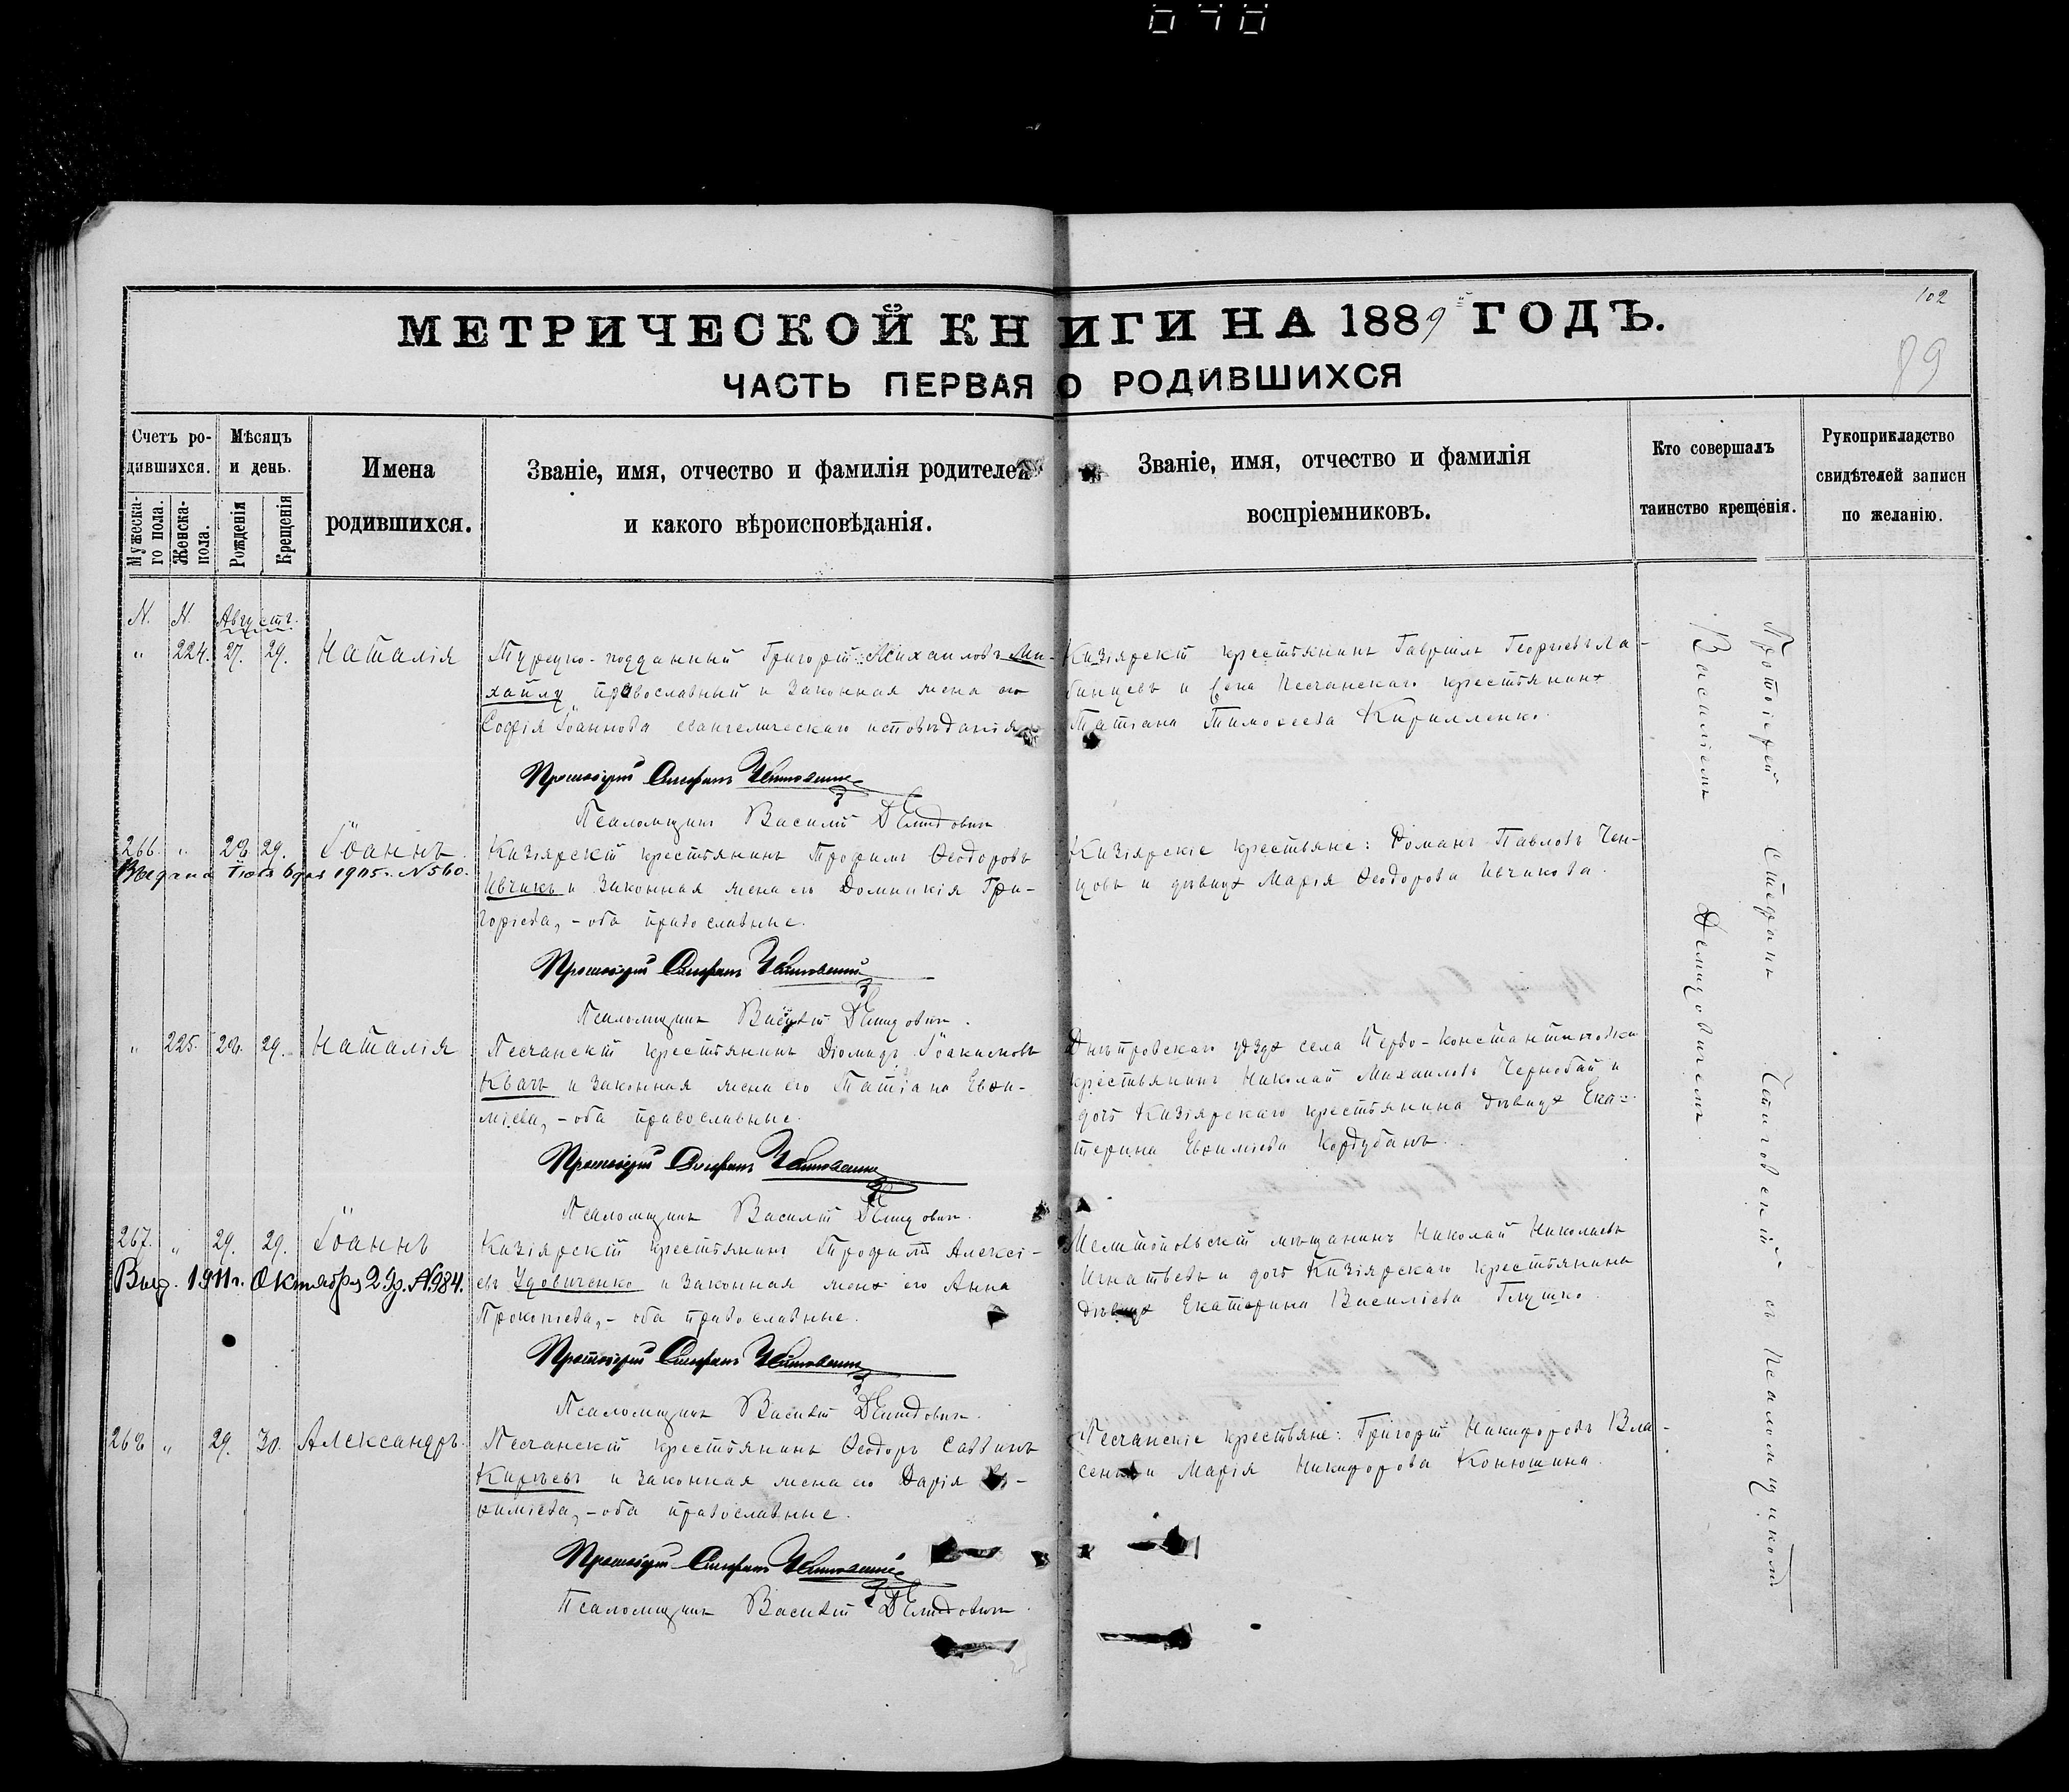 МЕТРИЧЕСКОЙ КНИГИ НА 1889й ГОДЪ.
102
ЧАСТЬ ПЕРВАЯ О РОДИВШИХСЯ
89
Счетъ родившихся.
Мужеска-го пола.
Женска-пола.
Мѣсяцъ и день.
Рожденія
Крещенія
Имена
родившихся.
Званіе, имя, отчество и фамилія родителей
и какого вѣроисповѣданія.
Званіе, имя, отчество и фамилія
воспріемниковъ.
Кто совершалъ
таинство крещенія.
Рукоприкладство
свидѣтелей записи
по желанію.
N. N. Августъ.
" 224. 27. 29. Наталія
Турецко-подданный Григорій Михаиловъ Ми-
хайлу православный и законная жена его
Софія Іоаннова евангелическаго исповѣданія
Протоіерей Стефанъ
Псаломщикъ Василій Демидовичъ
Кизіярскій крестьянинъ Гавріилъ Георгіевъ Ла-
и жена Песчанскаго крестьянина
Татіана Тимоѳеева Кирилленко.
266. " 28. 29. Іоаннъ
Выдана Іюля 6 дня 1905 г. N 560.
Кизіярскій крестьянинъ Трофимъ Ѳеодоровъ
Ивчикъ и законная жена его Домникія Гри-
горіева, - оба православные.
Протоіерей Стефанъ
Псаломщикъ Василій Демидовичъ.
Кизіярскіе крестьяне: Романъ Павловъ Чен-
цовъ и дѣвица Марія Ѳеодорова Ивчикова.
" 225. 28. 29. Наталія
Песчанскій крестьянинъ Діомидъ Іоакимовъ
Квачъ и законная жена его Татіана Евѳи-
міева, - оба православные.
Протоіерей Стефанъ
Псаломщикъ Василій Демидовичъ.
Днѣпровскаго уѣзда села Перво-Константиновки
крестьянинъ Николай Михаиловъ Чернобай и
дочь Кизіярскаго крестьянина дѣвица Ека-
терина Евѳиміева Кордубанъ.
267. " 29. 29. Іоаннъ
Выд. 1911 г. Октября 2 др. N. 984.
Кизіярскій крестьянинъ Трофимъ Алексі-
евъ Удовиченко и законная жена его Анна
Прокопіева, - оба православные.
Протоіерей Стефанъ
Псаломщикъ Василій Демидовичъ.
Мелитопольскій мѣщанинъ Николай Николаевъ
Игнатьевъ и дочь Кизіярскаго крестьянина
дѣвица Екатерина Василіева Глушко.
268 " 29. 30. Александръ
Песчанскій крестьянинъ Ѳеодоръ Саввинъ
Кирѣевъ и законная жена его Дарія Ев-
ѳиміева, - оба православные.
Протоіерей Стефанъ
Псаломщикъ Василій Демидовичъ.
Песчанскіе крестьяне: Григорій Никифоровъ Вла-
сенко и Марія Никифорова Конюшина.
Протоіерей Стефанъ съ псаломщикомъ
Василіемъ Демидовичемъ